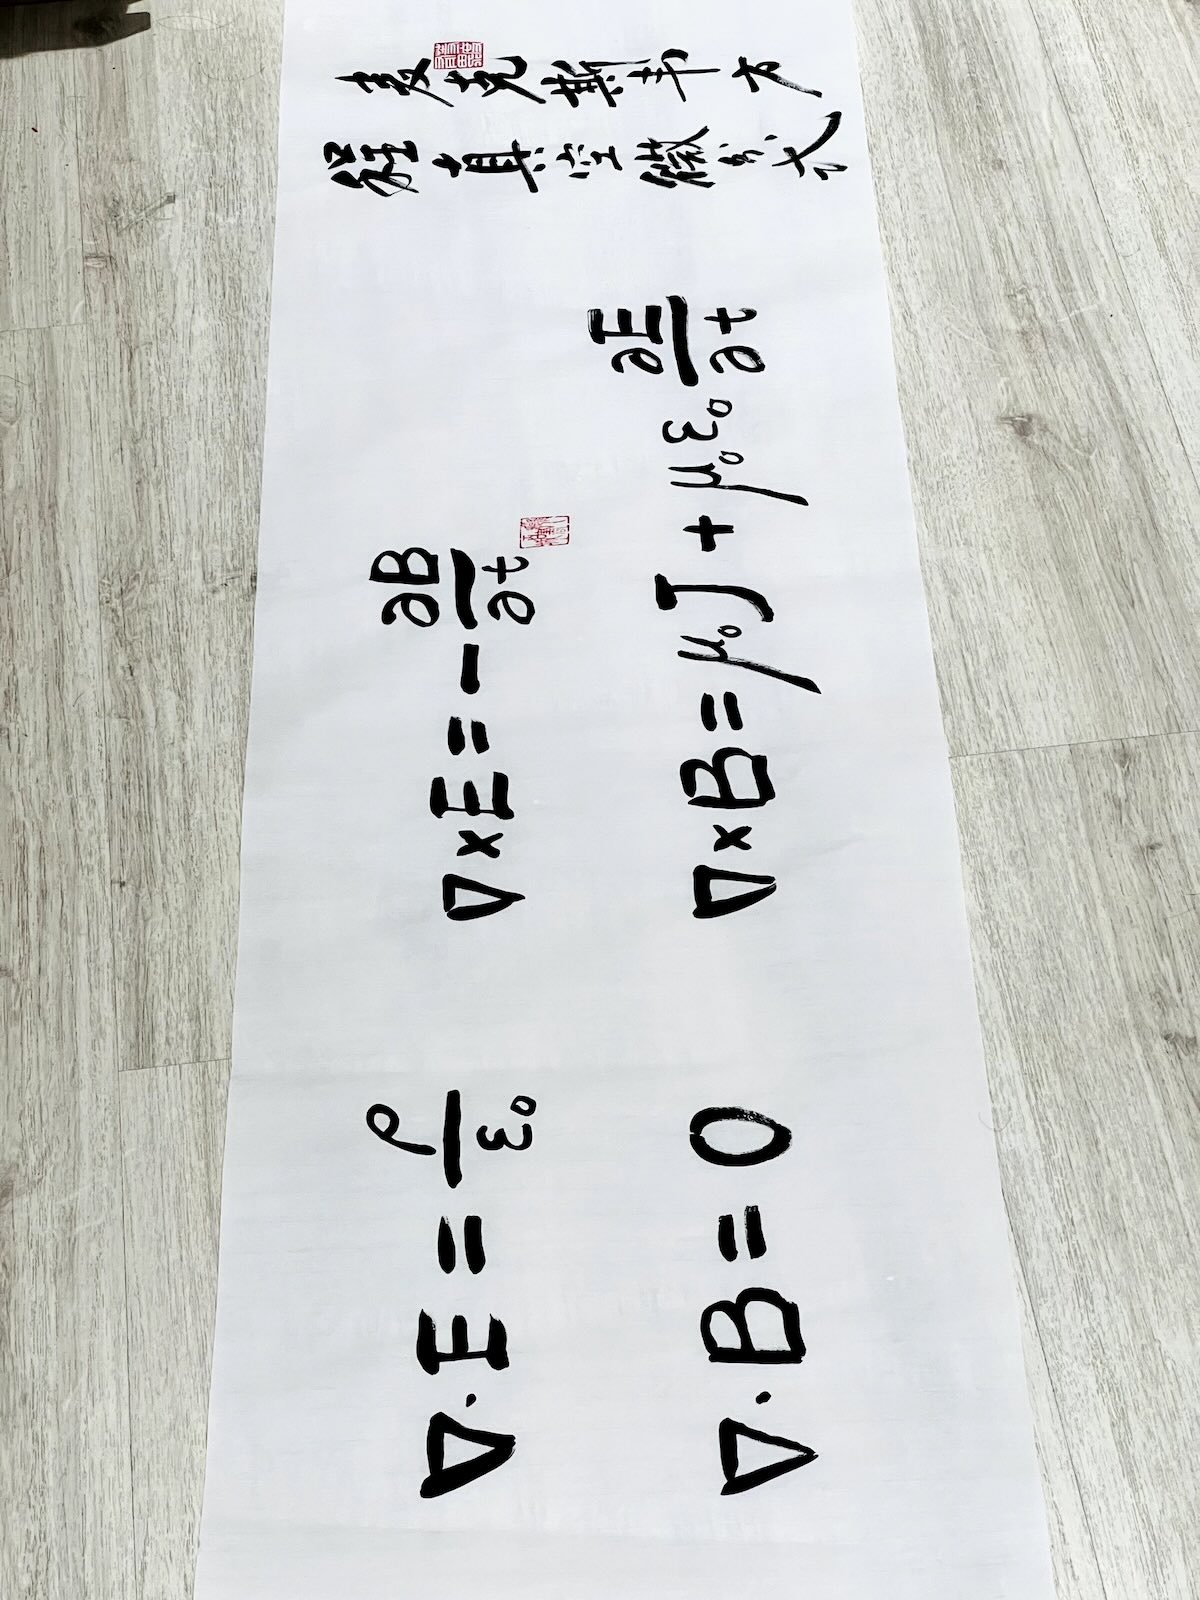 ∇·E = ρ/ε₀
∇×E = -∂B/∂t
∇·B = 0
∇×B = μ₀J + μ₀ε₀ ∂E/∂t
麦克斯韦方
程真空微分式